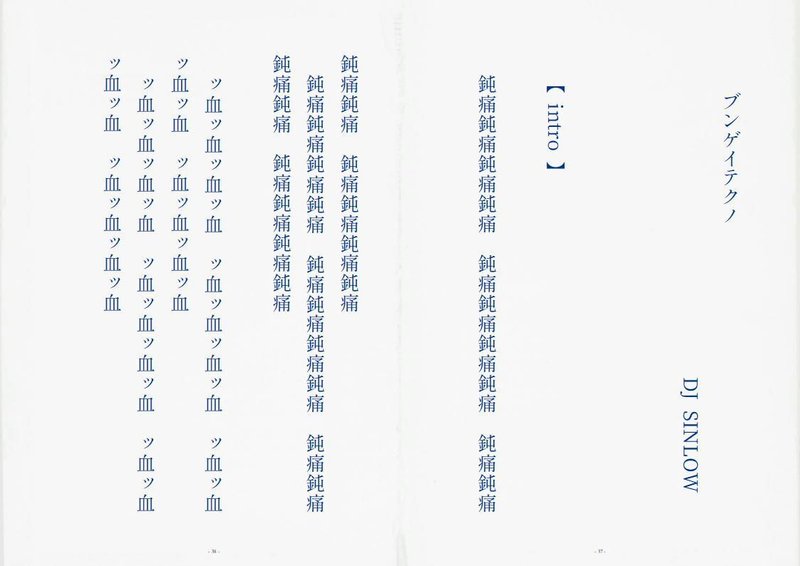 ブンゲイテクノ
DJ SINLOW
【 intro 】
鈍痛鈍痛鈍痛鈍痛　鈍痛鈍痛鈍痛鈍痛　鈍痛鈍痛
- 37 -
鈍痛鈍痛　鈍痛鈍痛鈍痛鈍痛
鈍痛鈍痛鈍痛鈍痛　鈍痛鈍痛鈍痛鈍痛　鈍痛鈍痛
鈍痛鈍痛　鈍痛鈍痛鈍痛鈍痛
ッ血ッ血ッ血ッ血　ッ血ッ血ッ血ッ血　ッ血ッ血
ッ血ッ血　ッ血ッ血ッ血ッ血
ッ血ッ血ッ血ッ血　ッ血ッ血ッ血ッ血　ッ血ッ血
ッ血ッ血　ッ血ッ血ッ血ッ血
- 36 -